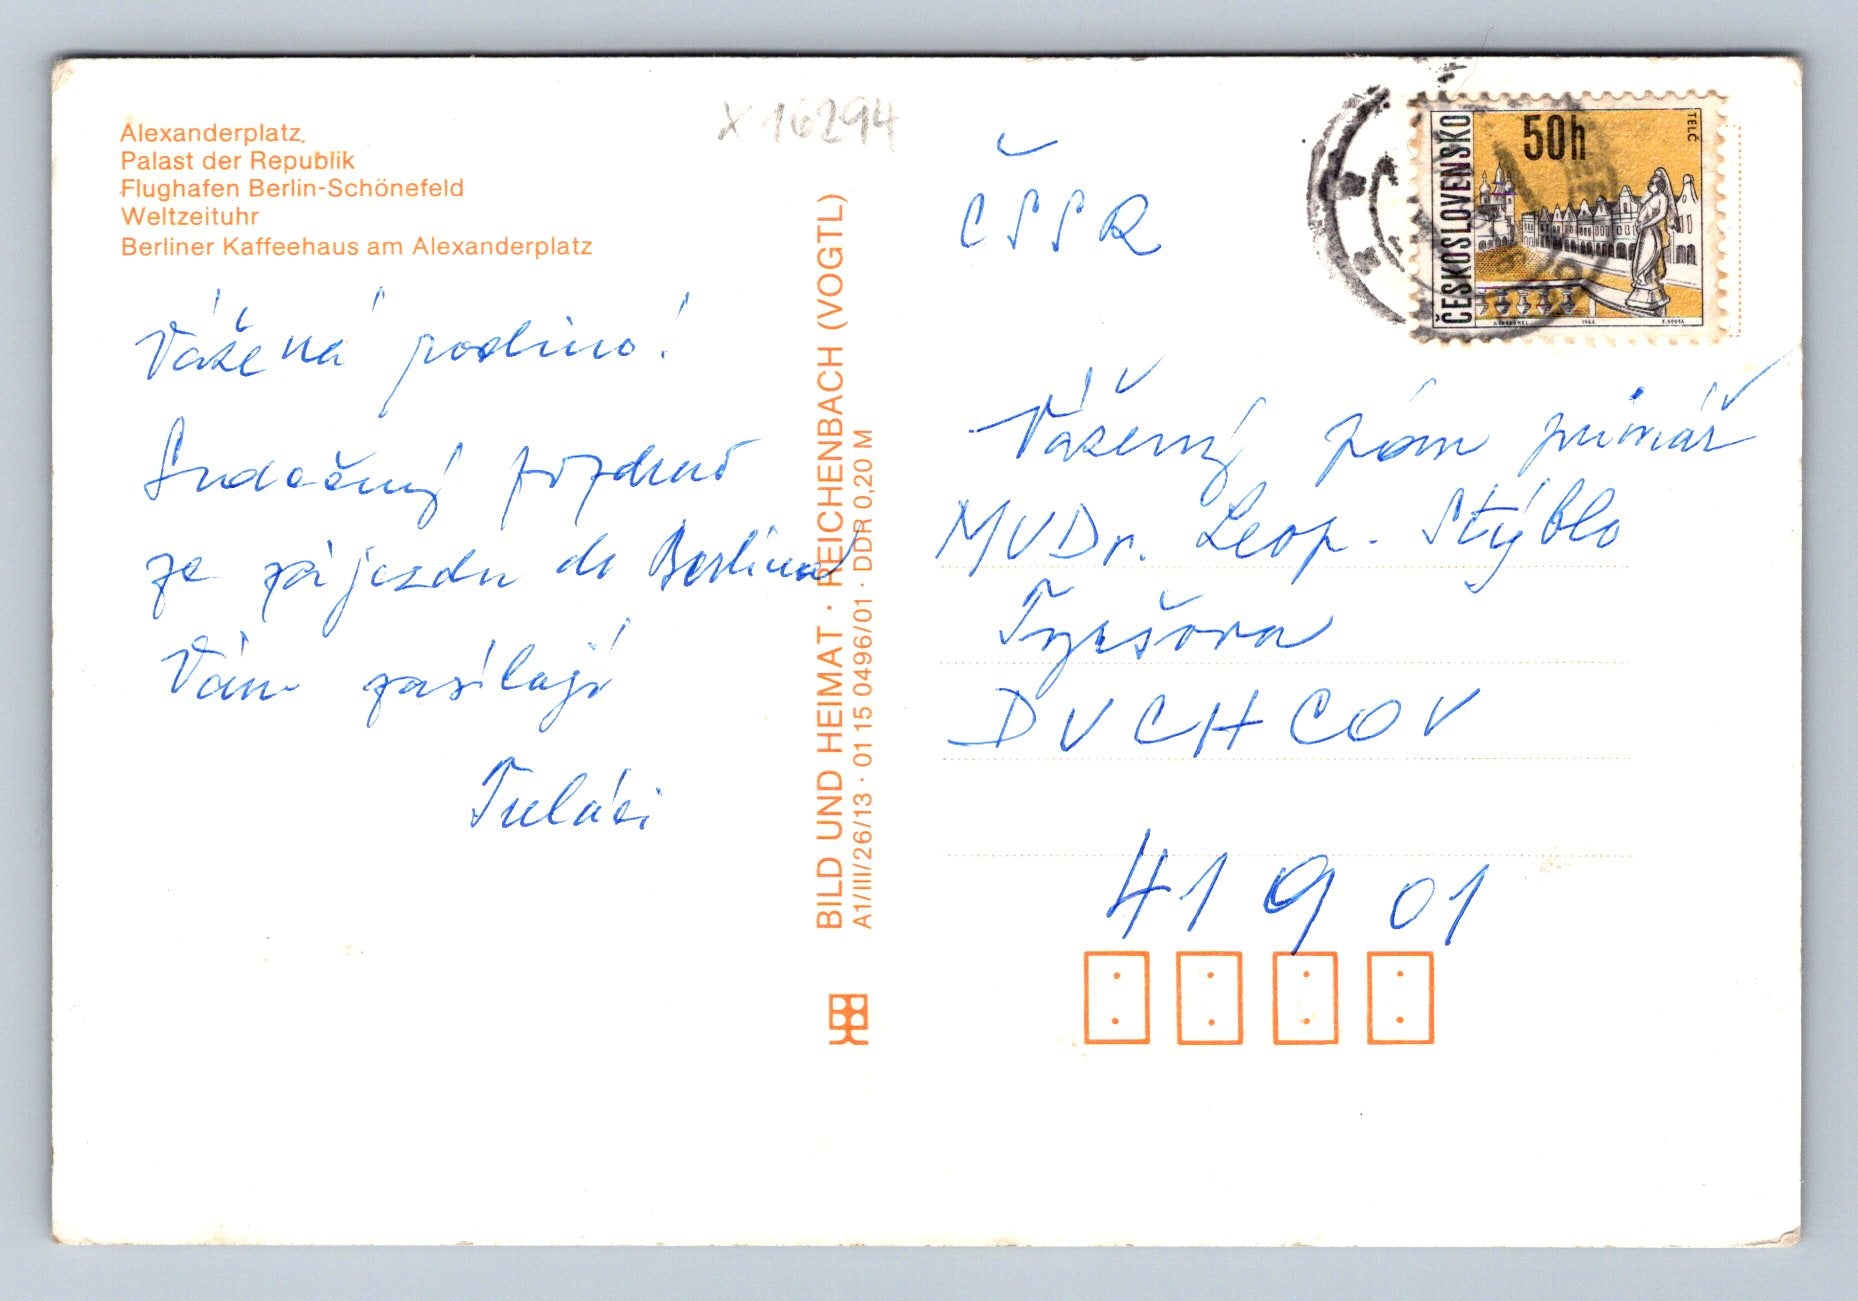 Alexanderplatz,
Palast der Republik
Flughafen Berlin-Schönefeld
Weltzeituhr
Berliner Kaffeehaus am Alexanderplatz
X 16294
Vážená rodino!
Srdečný pozdrav
ze zájezdu do Berlína
Vám zasílají
BILD UND HEIMAT · REICHENBACH (VOGTL)
A1/III/26/13 · 01 15 0496/01 · DDR 0,20 M
ČESKOSLOVENSKO
50h
TELČ
ČSSR
Vážený pán primář
MVDr. Leop. Stýblo
Tyršova
DUCHCOV
41901